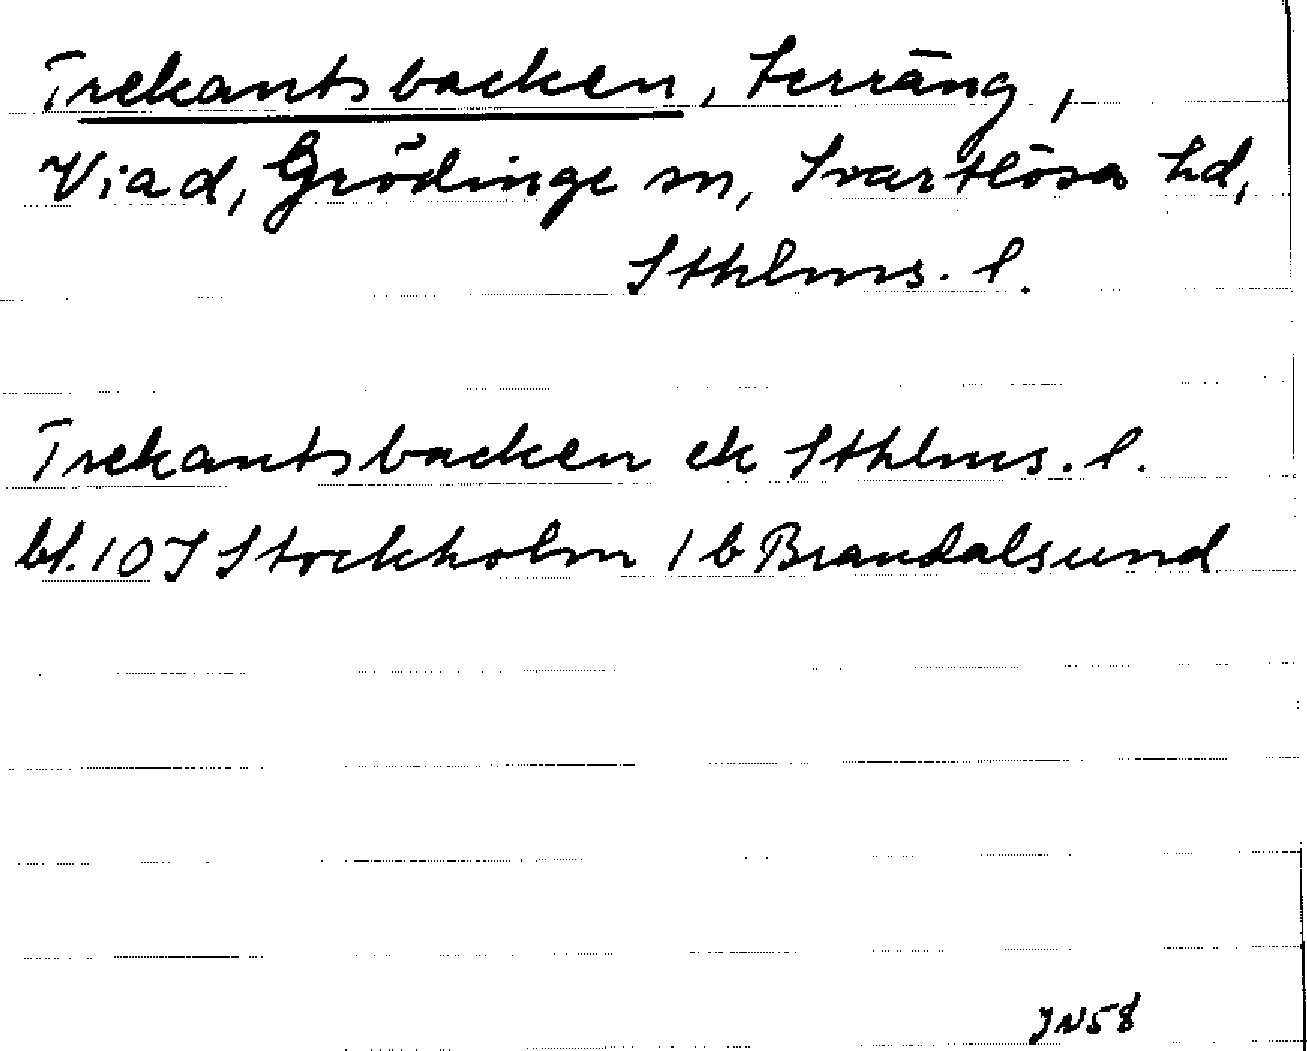 Trekantsbacken, terräng,
Viad, Grödinge sn, Svartlösa hd,
Sthlms. l.
Trekantsbacken ek Sthlms. l.
bl. 10 I Stockholm 1 b Brandalsund
JN58